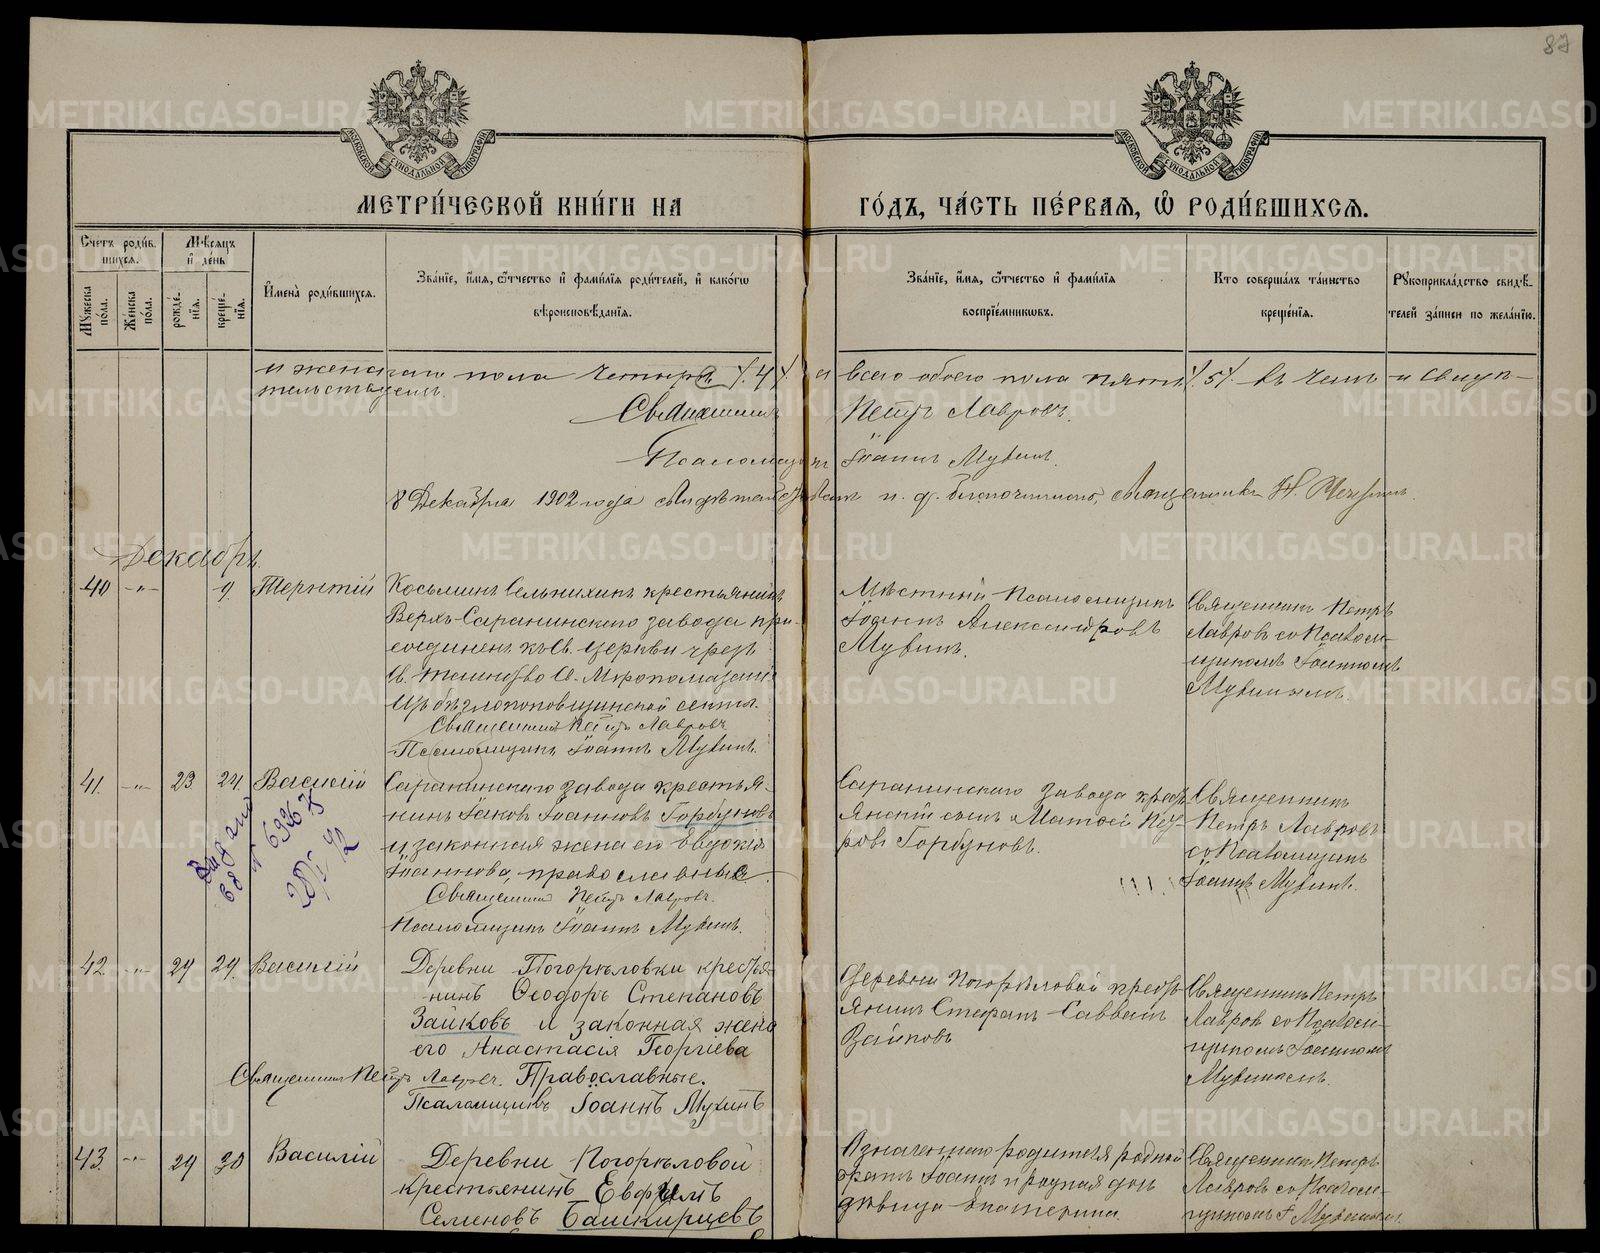 87
МЕТРИ́ЧЕСКОЙ КНИ́ГИ НА ГО́ДЪ, ЧА́СТЬ ПЕ́РВАЯ, Ѡ҆ РОДИ́ВШИХСЯ.
Счетъ роди́вшихся.
Мѣсяцъ и҆ де́нь
Му́жеска по́ла.
Же́нска по́ла.
рожде́нїя.
креще́нїя.
И҆мена̀ роди́вшихся.
Зва́нїе, и҆́мя, ѻ҆́тчество и҆ фами́лїя роди́телей, и҆ како́гѡ вѣроисповѣ́данїя.
Зва́нїе, и҆́мя, ѻ҆́тчество и҆ фами́лїя воспрїе́мниковъ.
Кто соверша́лъ та́инство креще́нїя.
Рꙋкоприкла́дство свидѣ́телей за́писи по жела́нїю.
и женскаго пола четыре /4/ а всего обоего пола пять /5/ въ чемъ и свидѣ-
тельствуемъ.
Священникъ Петръ Лавровъ.
Псаломщикъ Іоаннъ Мухинъ.
8 Декабря 1902 года свидѣтельствовалъ и. д. благочиннаго, священникъ Н.
Декабрь.
40 -"- 9. Терентій
Косьминъ Сельнихинъ крестьянинъ
Верхъ-Саранинскаго завода при-
соединенъ къ Св. церкви чрезъ
Св. таинство Св. Мѵропомазанія
изъ бѣглопоповщинской секты.
Священникъ Петръ Лавровъ
Псаломщикъ Іоаннъ Мухинъ.
Мѣстный Псаломщикъ
Іоаннъ Александровъ
Мухинъ.
Священникъ Петръ
Лавровъ со Псалом-
щикомъ Іоанномъ
Мухинымъ.
41. -"- 23. 24. Василій
Саранинскаго завода крестья-
нинъ Іаковъ Іоанновъ Горбуновъ
и законная жена его Евдокія
Іоаннова, православные.
Священникъ Петръ Лавровъ.
Псаломщикъ Іоаннъ Мухинъ.
Саранинскаго завода кресть-
янскій сынъ Матѳей Пет-
ровъ Горбуновъ.
Священникъ
Петръ Лавровъ
со Псаломщикомъ
Іоаннъ Мухинъ.
Выдано
св №
42. -"- 29 29. Василій
Деревни Погорѣловки крестья-
нинъ Ѳеодоръ Степановъ
Зайковъ и законная жена
его Анастасія Георгіева
Священникъ Петръ Лавровъ. Православные.
Псаломщикъ Іоаннъ Мухинъ
Деревни Погорѣловой кресть-
янинъ Стефанъ Саввинъ
Зайковъ
Священникъ Петръ
Лавровъ со Псалом-
щикомъ Іоанномъ
Мухинымъ.
43. -"- 29 30 Василій
Деревни Погорѣловой
крестьянинъ Евфимъ
Семеновъ Башкирцевъ
Означеннаго родителя родной
братъ Іоаннъ и родная дочь
дѣвица Екатерина.
Священникъ Петръ
Лавровъ со Псалом-
щикомъ І. Мухинымъ.